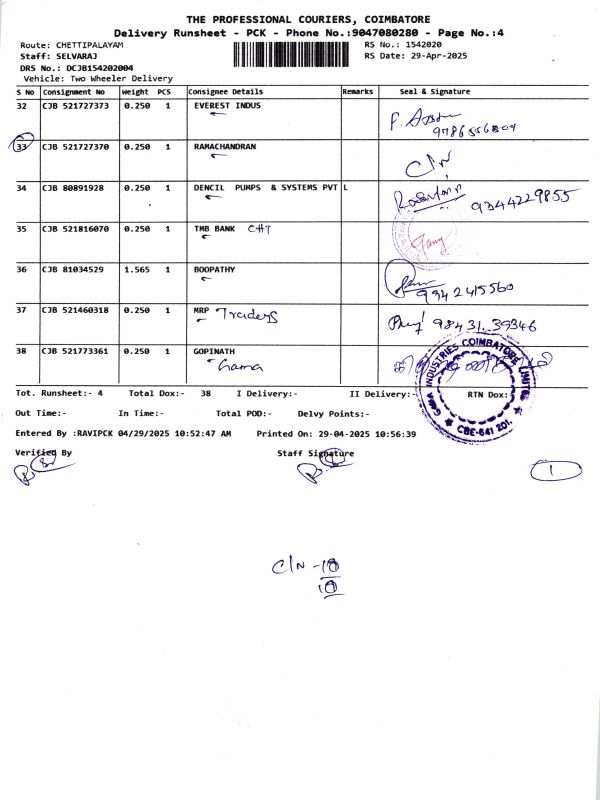 THE PROFESSIONAL COURIERS, COIMBATORE
Delivery Runsheet - PCK - Phone No.:9047080280 - Page No.:4
Route: CHETTIPALAYAM RS No.: 1542020
Staff: SELVARAJ RS Date: 29-Apr-2025
DRS No.: DCJB154202004
Vehicle: Two Wheeler Delivery
S No Consignment No Weight PCS Consignee Details Remarks Seal & Signature
32 CJB 521727373 0.250 1 EVEREST INDUS
9786556804
33 CJB 521727370 0.250 1 RAMACHANDRAN C/N
34 CJB 80891928 0.250 1 DENCIL PUMPS & SYSTEMS PVT L 9344229855
35 CJB 521816070 0.250 1 TMB BANK CHT
36 CJB 81034529 1.565 1 BOOPATHY
9942415560
37 CJB 521460318 0.250 1 MRP Traders 98431.39346
38 CJB 521773361 0.250 1 GOPINATH
Gama
GAMA INDUSTRIES COIMBATORE LIMITED
CBE-641 201.
Tot. Runsheet:- 4 Total Dox:- 38 I Delivery:- II Delivery:- RTN Dox:
Out Time:- In Time:- Total POD:- Delvy Points:-
Entered By :RAVIPCK 04/29/2025 10:52:47 AM Printed On: 29-04-2025 10:56:39
Verified By Staff Signature
1
C/N -18
18